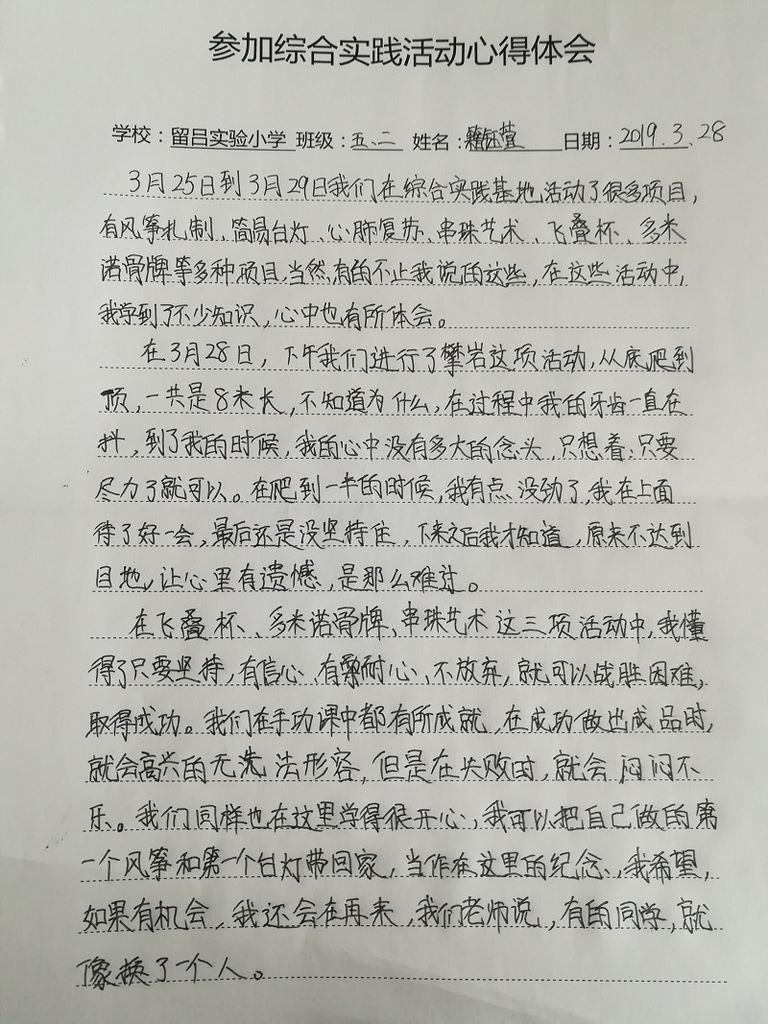 参加综合实践活动心得体会
学校：留吕实验小学 班级：五、二 姓名：钰莹 日期：2019.3.28
3月25日到3月29日我们在综合实践基地活动了很多项目，
有风筝札制、简易台灯、心肺复苏、串珠艺术、飞叠杯、多米
诺骨牌等多种项目，当然，有的不止我说的这些，在这些活动中，
我学到了不少知识，心中也有所体会。
在3月28日，下午我们进行了攀岩这项活动，从底爬到
顶，一共是8米长，不知道为什么，在过程中我的牙齿一直在
抖，到了我的时候，我的心中没有多大的念头，只想着：只要
尽力了就可以。在爬到一半的时候，我有点没劲了，我在上面
待了好一会，最后还是没坚持住，下来之后我才知道，原来不达到
目地，让心里有遗憾，是那么难过。
在飞叠杯、多米诺骨牌、串珠艺术这三项活动中，我懂
得了只要坚持，有信心、有耐心、不放弃，就可以战胜困难，
取得成功。我们在手功课中都有所成就，在成功做出成品时，
就会高兴的无法形容，但是在失败时，就会闷闷不
乐。我们同样也在这里学得很开心，我可以把自己做的第
一个风筝和第一个台灯带回家，当作在这里的纪念、我希望，
如果有机会，我还会在再来，我们老师说，有的同学，就
像换了一个人。